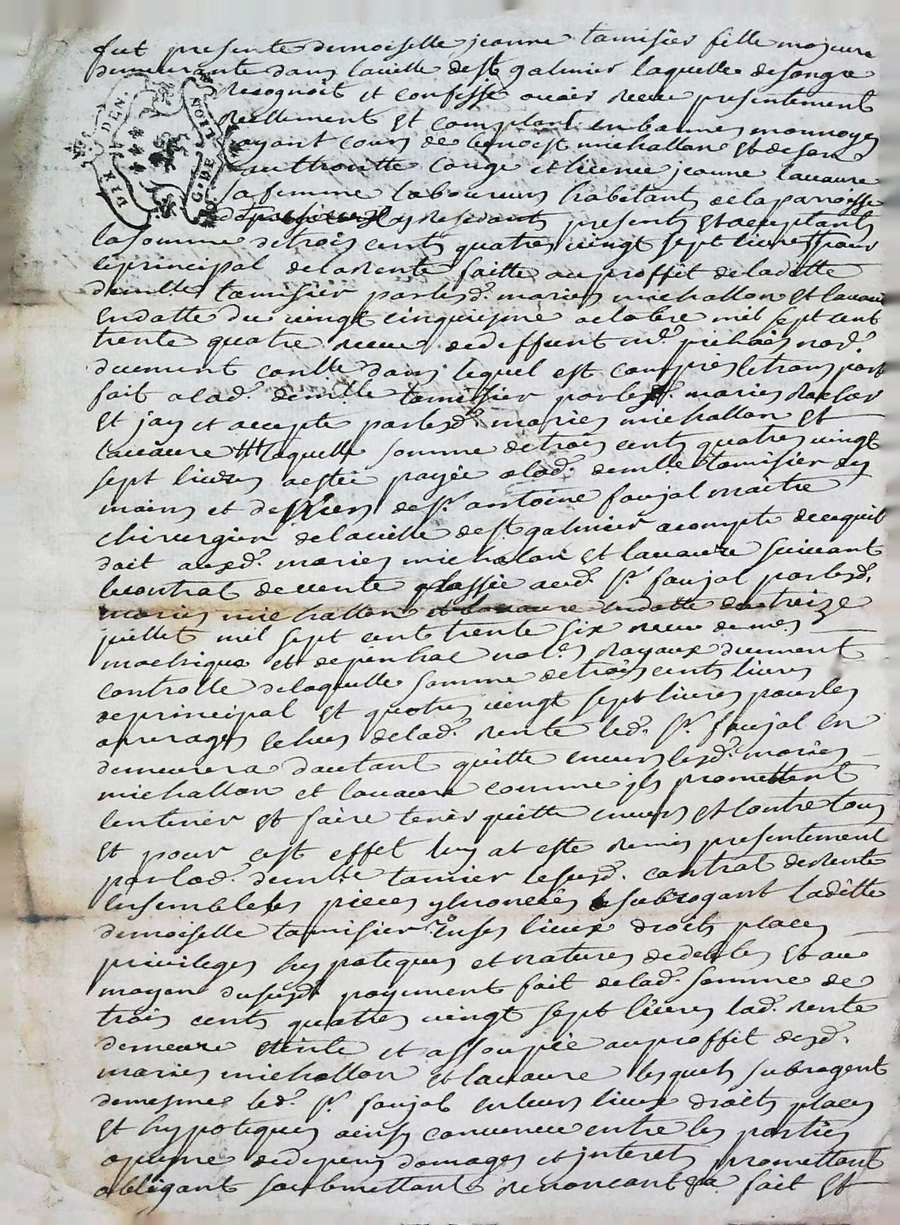 fut presente demoiselle jeanne tamisier fille majeure
demeurante dans laville de St galmier laquelle de son gre
recognoit et confesse avoir receu presentement
reellement et comptant en bonnes monnoyes
ayant cours de benoist michallon et de son
authoritte conge et licence jeanne lavaure
sa femme laboureurs habitant de la parroisse
y residants presents et acceptants
la somme de trois cents quatres vingt sept livres pour
le principal de la rente faitte au proffit de laditte
demlle tamisier par lesd. maries michallon et lavaure
en datte du vingt cinquieme octobre mil sept cent
trente quatre receu de deffunt me notre.
duement conlle dans lequel est compris le transport
fait a lad. demlle tamisier par lesd. maries
et jay et accepte par lesd. maries michallon et
lavaure laquelle somme de trois cents quatres vingt
sept livres a estée payée a lad. demlle tamisier des
mains et deniers de sr. antoine faujal maitre
chirurgien de la ville de St galmier acompte de ce quil
doit auxd. maries michalon et lavaure suivant
le contrat de vente passée aud. sr. faujal par lesd.
maries michallon et lavaure en datte du treize
juillet mil sept cent trente six receu de mes
not.s royaux duement
controlle de laquelle somme de trois cents livres
de principal et quatres vingt sept livres pour les
arrerages echeus de lad. rente led. sr. faujal en
demeurera dautant quitte envers lesd. maries
michallon et lavaure comme jls promettent
lentenir et faire tenir quitte envers et contre tous
et pour cest effet luy at este remis presentement
par lad. demlle tamier le susd. contrat de rente
ensemble les pieces ynoncées subrogant laditte
demoiselle tamisier en ses lieux droits places
privileges hypoteques et natures de debtes et au
moyen du susd. payement fait de lad. somme de
trois cents quattres vingt sept livres lad. rente
demeure eteinte et assoupie au proffit desd.
maries michallon et lavaure lesquels subrogent
demesmes led. sr. faujal en leurs lieux droits places
et hypoteques ainsy convenu entre les parties
a peine de depens domages et interets promettant
obligeant soubmettant renoncant &a fait et
DIX DEN.
G. DE LION